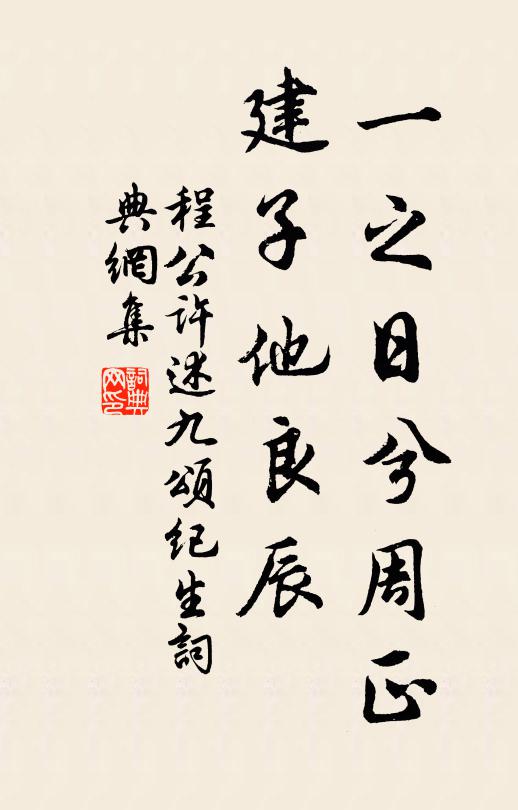 一之日兮周正
建子他良辰
程公许述九頌纪生詞
典網集
詞典網印